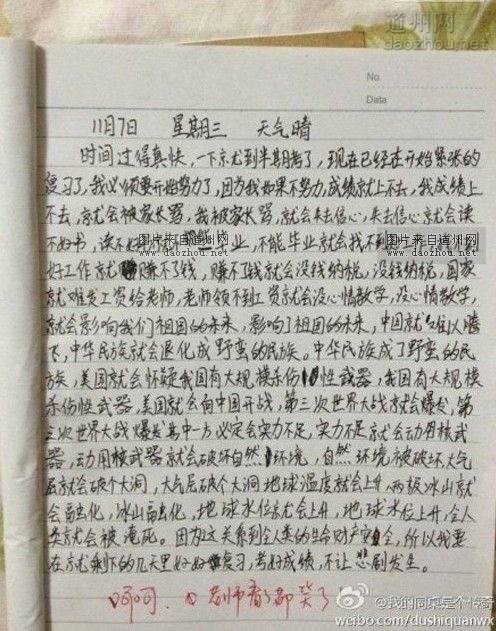 通州网
daozhou.net
No.
Data
11月7日 星期三 天气晴
时间过得真快，一下就到半期考了，现在已经在开始紧张的
复习了，我必须要开始努力了，因为我如果不努力，成绩就上不去，我成绩上
不去，就会被家长骂，我被家长骂，就会失去信心，失去信心就会读
不好书，读不好书就 业，不能毕业就会找不到
图片来自道州网
www.daozhou.net
图片来自道州网
www.daozhou.net
好工作就赚不了钱，赚不了钱就会没钱纳税，没钱纳税，国家
就难发工资给老师，老师领不到工资就会没心情教学，没心情教学，
就会影响我们祖国的未来，影响了祖国的未来，中国就难以腾
飞，中华民族就会退化成野蛮的民族。中华民族成了野蛮的民
族，美国就会怀疑我国有大规模杀伤性武器，我国有大规模
杀伤性武器，美国就会向中国开战，第三次世界大战就会爆发，第
三次世界大战爆发其中一方必定会实力不足，实力不足就会动用核武
器，动用核武器就会破坏自然环境，自然环境被破坏，大气
层就会破个大洞，大气层破个大洞地球温度就会上升，两极冰山就
会融化，冰山融化，地球水位就会上升，地球水位上升，全人
类就会被淹死。因为这关系到全人类的生命财产安全，所以我要
在就剩下的几天里好好复习，考好成绩，不让悲剧发生。
呵呵， 老师看了都笑了
@我的同桌是个传奇
weibo.com/dushiquanwx